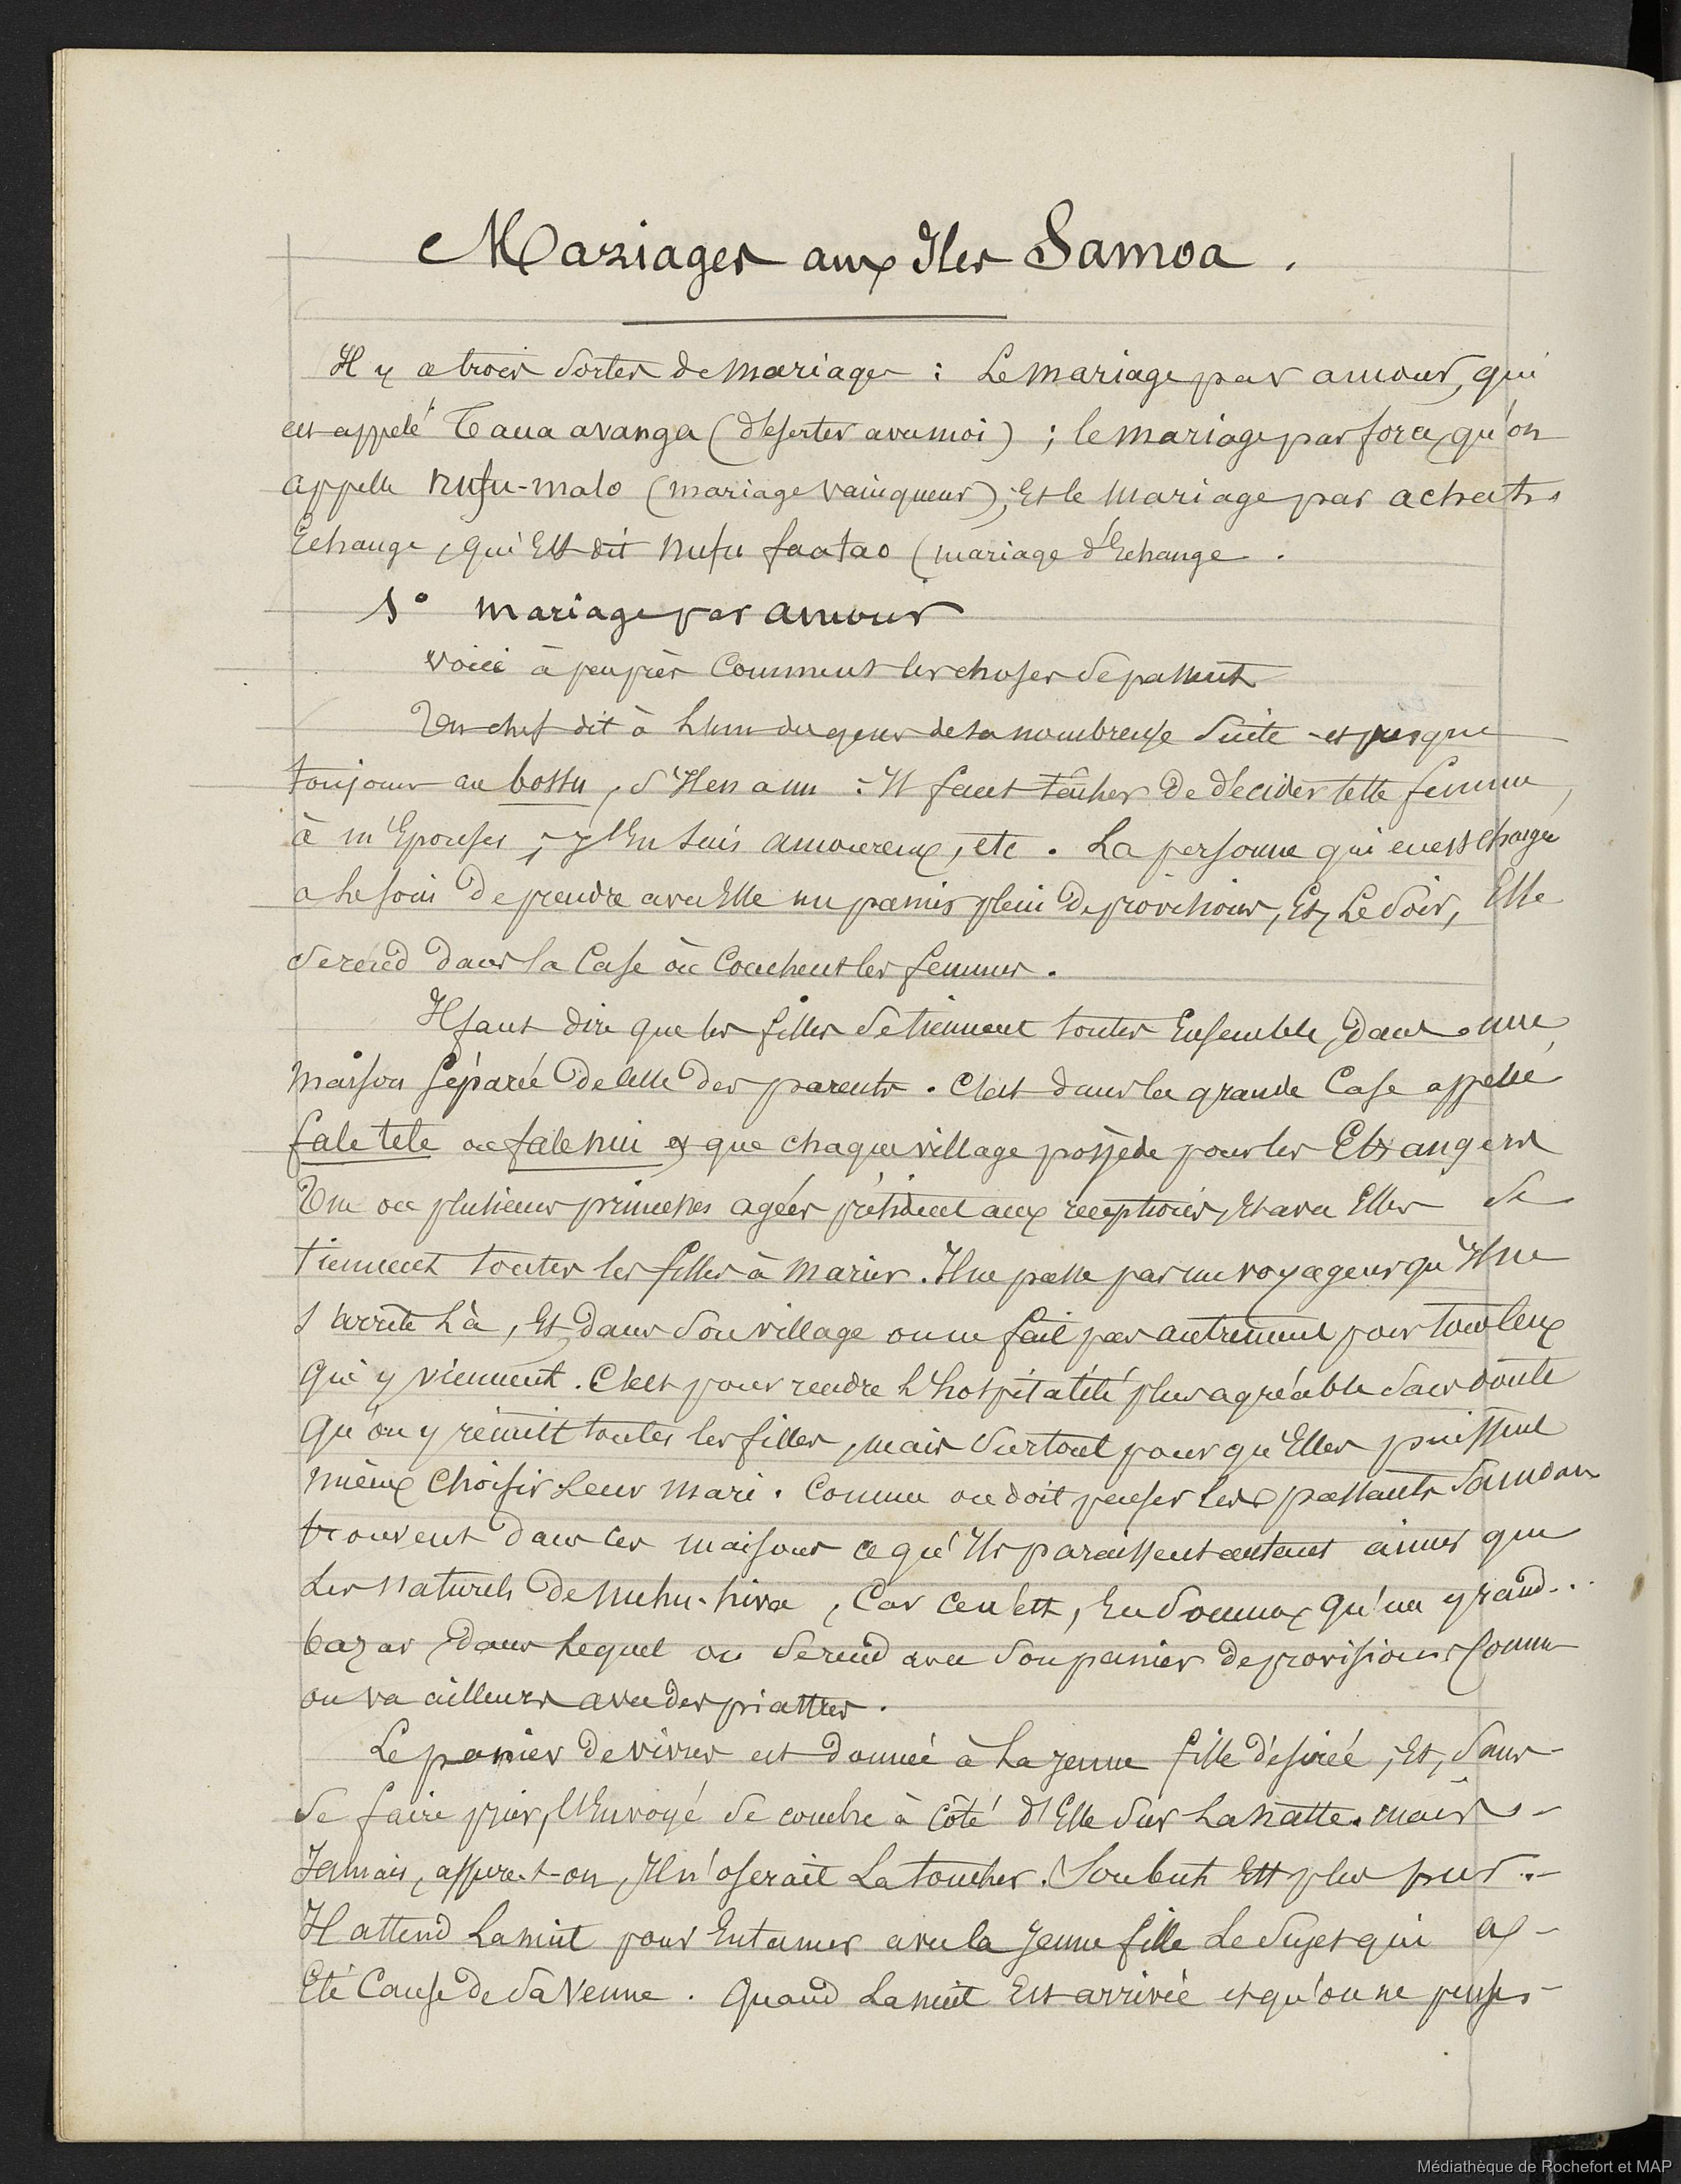 Mariages aux Iles Samoa.
Il y a trois sortes de mariages : Le mariage par amour, qui
est appelé Taua avanga (déserter avec moi) ; le mariage par force, qu'on
appelle nufu-malo (mariage vainqueur), Et le mariage par achat
Echange, qui Est dit nufu faatao (mariage d'Echange.
1° mariage par amour
voici à peu près Comment les choses se passent
Un chef dit à l'un des gens de sa nombreuse suite - et presque
toujours au bossu, s'Il en a un : Il faut tâcher de décider cette femme,
à m'Epouser, j'En suis amoureux, etc. La personne qui en est chargée
a le soin de prendre avec Elle un panier plein de provisions, Et, Le soir, Elle
se rend dans la Case où Couchent les femmes.
Il faut dire que les filles se tiennent toutes Ensemble, dans une
maison séparée de Celle des parents. C'est dans la grande Case appelée
fale tele ou fale nui et que chaque village possède pour les Etrangers
Une ou plusieurs princesses agées président aux réceptions, Et avec Elles se
tiennent toutes les filles à marier. Il ne passe pas un voyageur qu'Il ne
s'arrête Là, Et dans son village on ne fait pas autrement pour tous Ceux
qui y viennent. C'est pour rendre L'hospitalité plus agréable sans doute
qu'on y réunit toutes les filles, mais surtout pour qu'Elles puissent
mieux Choisir Leur mari. Comme on doit penser les passants Samoans
trouvent dans ces maisons ce qu'Ils paraissent autant aimer que
Les naturels de nuhu-hiva, Car ce n'est, En Somme, qu'un grand...
bazar, dans Lequel on se rend avec son panier de provisions Comme
on va ailleurs avec des piastres.
Le panier de vivres est donné à La jeune fille désirée, Et, sans-
se faire prier, l'Envoyé se couche à Côté d'Elle sur La natte. mais -
Jamais, assure-t-on, Il n'oserait La toucher. Son but Est plus pur. -
Il attend La nuit pour Entamer avec la Jeune fille Le sujet qui a -
Eté Cause de sa Venue. Quand La nuit Est arrivée et qu'on ne pense -
Médiathèque de Rochefort et MAP